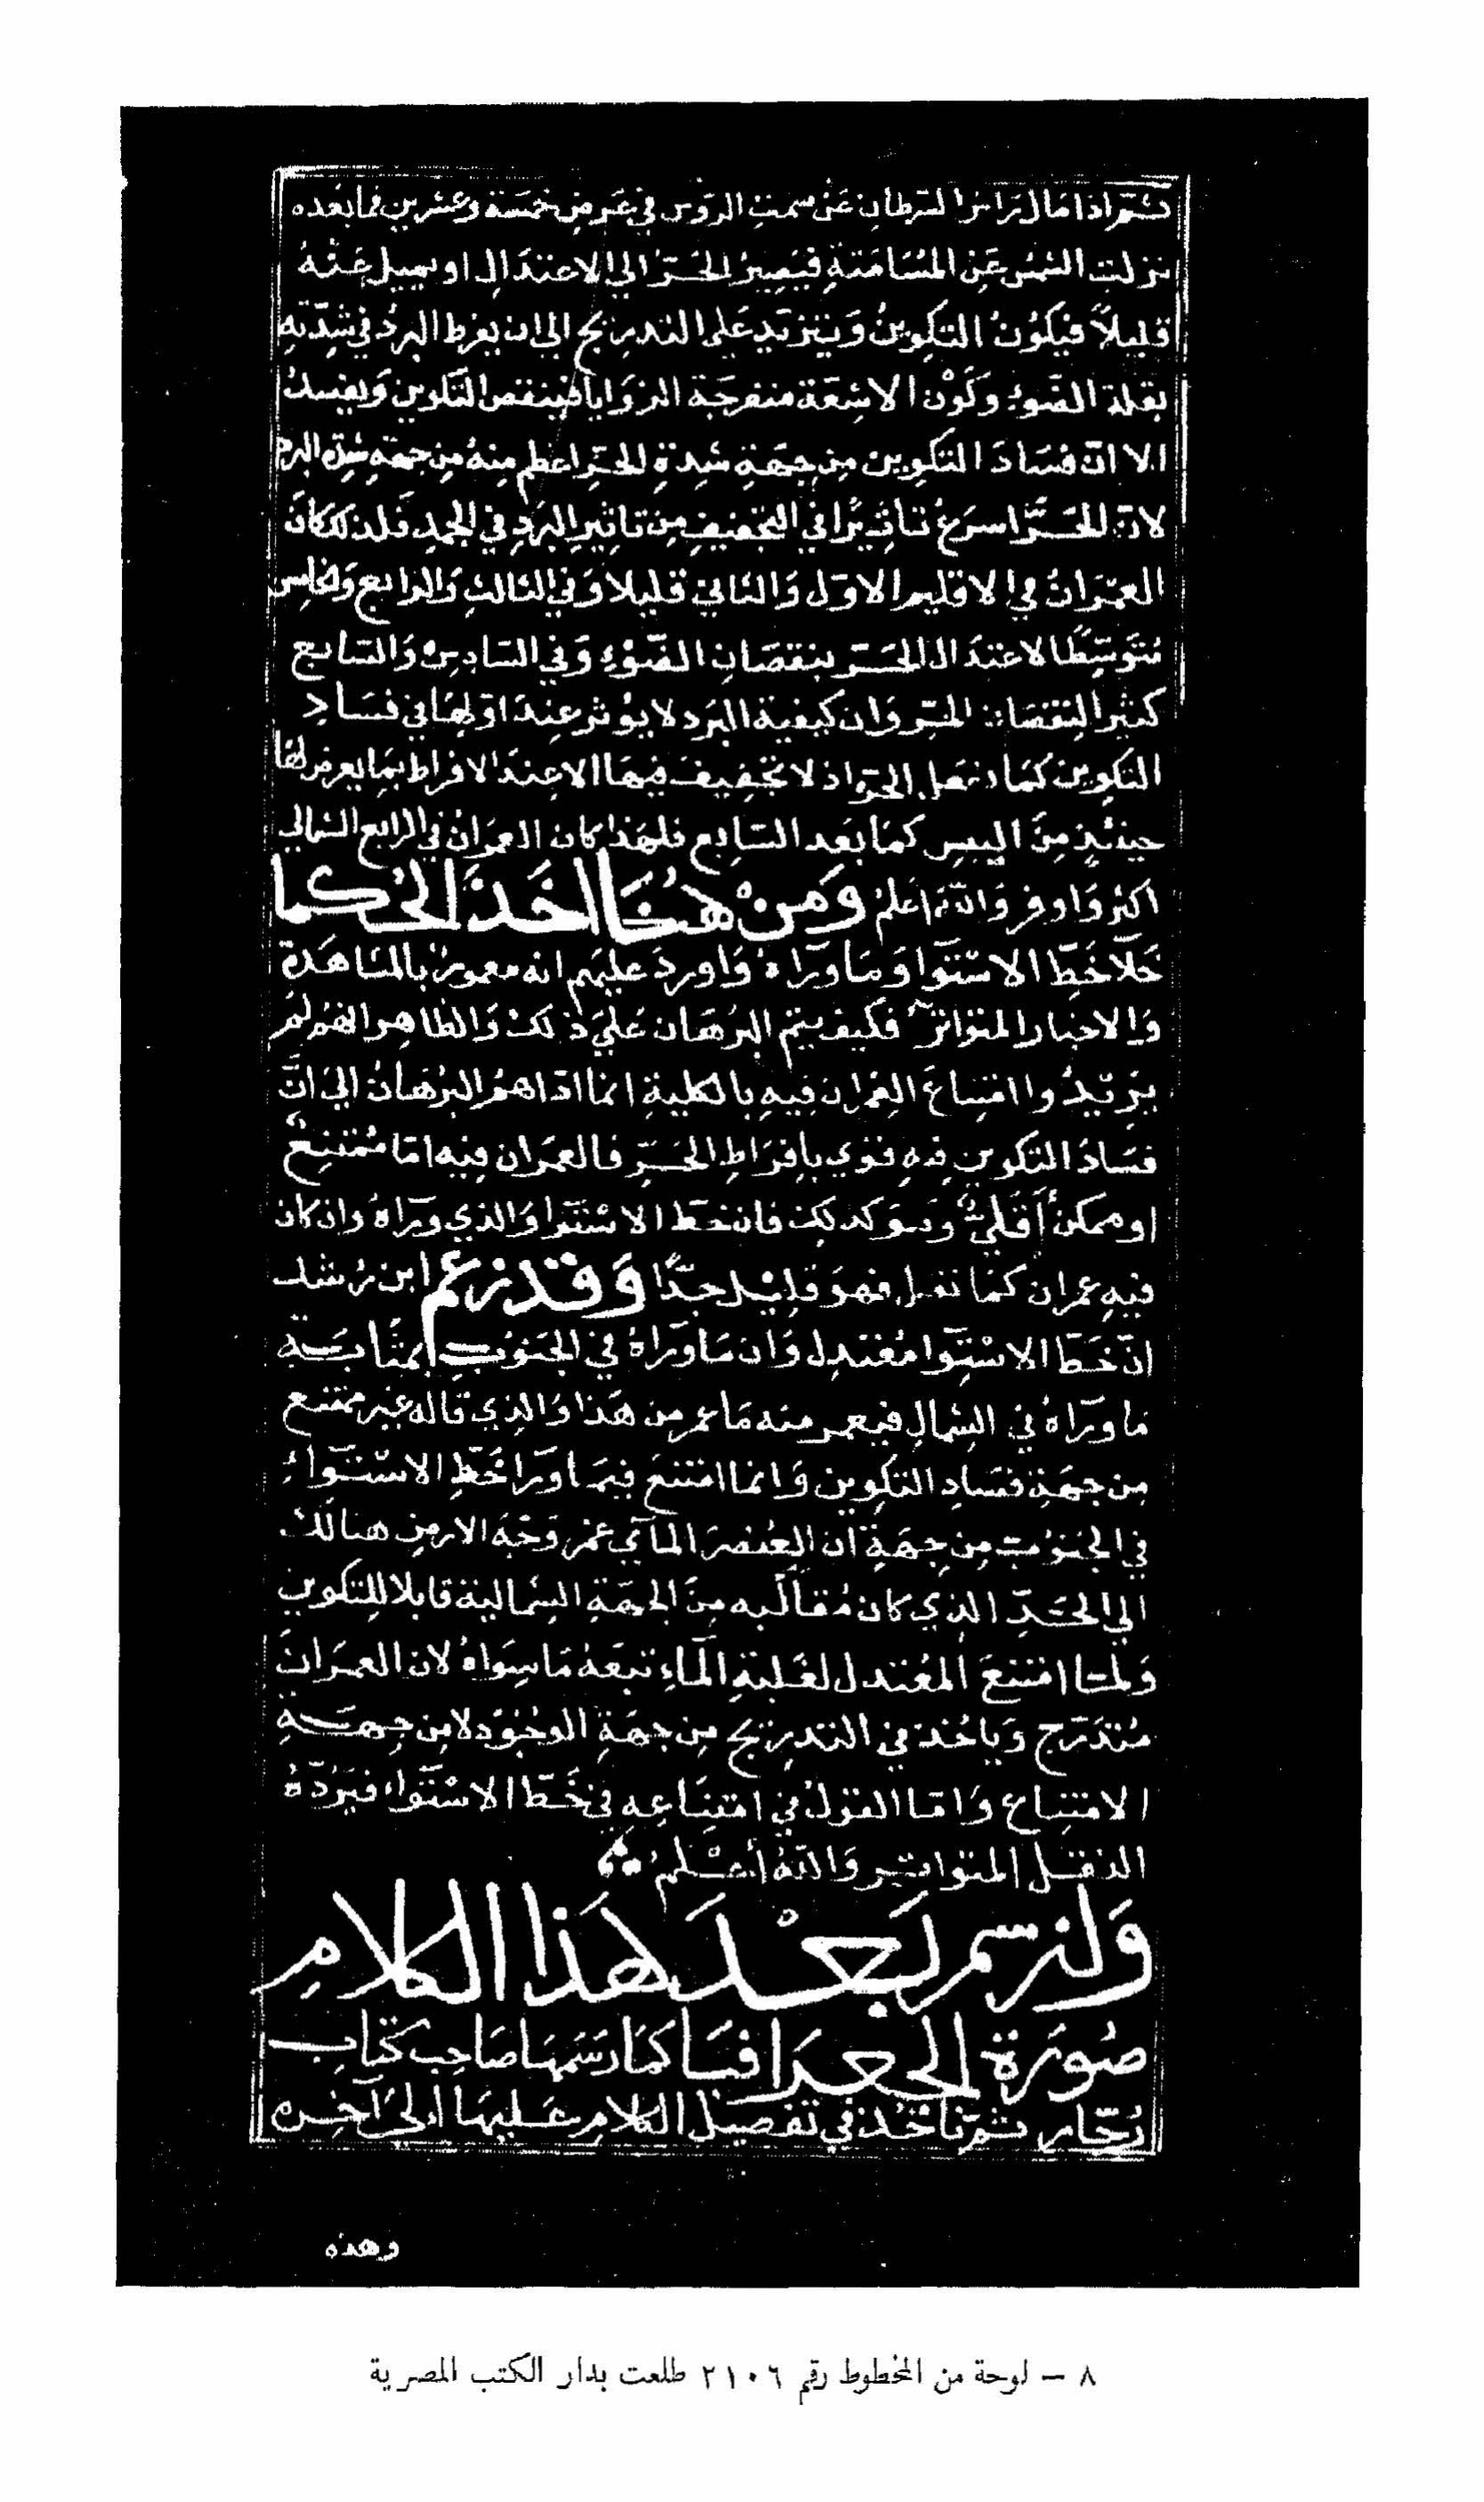 ثم اذا مال راس السرطان عن سمت الروس في عرض خمسة وعشرين فما بعده
نزلت الشمس عن المسامتة فيصير الحر الي الاعتدال او يميل عنه
قليلا فيكون التكوين ويتزيد علي التدريج الي ان يفرط البرد في شدته
بقلة الضوء وكون الاشعة منفرجة الزوايا فينقص التكوين ويفسد
الا ان فساد التكوين من جهة شدة الحر اعظم منه من جهة شدة البرد
لان الحر اسرع تاثيرا في التجفيف من تاثير البرد في الجمد فلذلك كان
العمران في الاقليم الاول والثاني قليلا وفي الثالث والرابع والخامس
متوسطا لاعتدال الحر بنقصان الضوء وفي السادس والسابع
كثيرا لنقصان الحر وان كيفية البرد لا يوثر عند اولها في فساد
التكوين كما تفعل الحر اذ لا تجفيف فيها الا عند الافراط بما يعرض لها
حينئذ من اليبس كما بعد السابع فلهذا كان العمران في الرابع الشمالي
اكثر واوفر والله اعلم ومن هنا اخذ الحكما
خلا خط الاستوا وما وراه واورد عليهم انه معمور بالمشاهدة
والاخبار المتواترة فكيف يتم البرهان علي ذلك والظاهر انهم لم
يريدوا امتناع العمران فيه بالكلية انما اداهم البرهان الي ان
فساد التكوين فيه قوي بافراط الحر فالعمران فيه اما ممتنع
او ممكن أقلي وهو كذلك فان خط الاستوا والذي وراه وان كان
فيه عمران كما نقل فهو قليل جدا وقد زعم ابن رشد
ان خط الاستوا معتدل وان ما وراه في الجنوب بمثابة
ما وراه في الشمال فيعمر منه ما عمر من هذا والذي قاله غير ممتنع
من جهة فساد التكوين وانما امتنع فيما ورا خط الاستواء
في الجنوب من جهة أن العنصر المآي غمر وجه الارض هنالك
الي الحد الذي كان مقابله من الجهة الشمالية قابلا للتكوين
ولما امتنع المعتدل لغلبة المآء تبعه ما سواه لان العمران
متدرج وياخذ في التدريج من جهة الوجود لا من جهة
الامتناع واما القول في امتناعه في خط الاستوآء فيرده
النقل المتواتر والله أعلم
ولنرسم بعد هذا الكلام
صورة الجغرافيا كما رسمها صاحب كتاب
رجار ثم ناخذ في تفصيل الكلام عليها الى آخره
وهذه
٨ — لوحة من المخطوط رقم ٢١٠٦ طلعت بدار الكتب المصرية